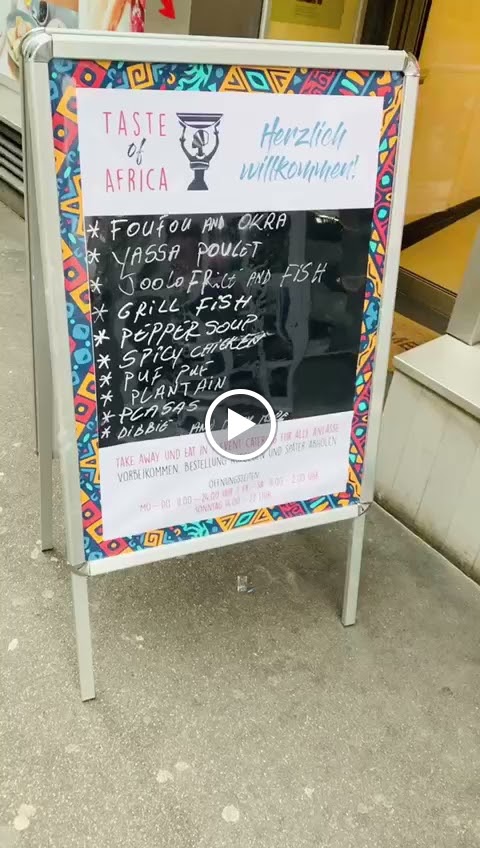 TASTE
of
AFRICA
Herzlich
willkommen!
* FOUFOU AND OKRA
* YASSA POULET
* JOOLOFRICE AND FISH
* GRILL FISH
* PEPPER SOUP
* SPICY CHICKEN
* PUF PUF
* PLANTAIN
* PLASAS
* DIBBIE AND
TAKE AWAY UND EAT IN EVENT CATERING FÜR ALLE ANLÄSSE
VORBEIKOMMEN, BESTELLUNG UND SPÄTER ABHOLEN
ÖFFNUNGSZEITEN
MO - DO 11.00 - 24.00 UHR / FR - SA 11.00 - 2.00 UHR
SONNTAG 14.00 - 22 UHR